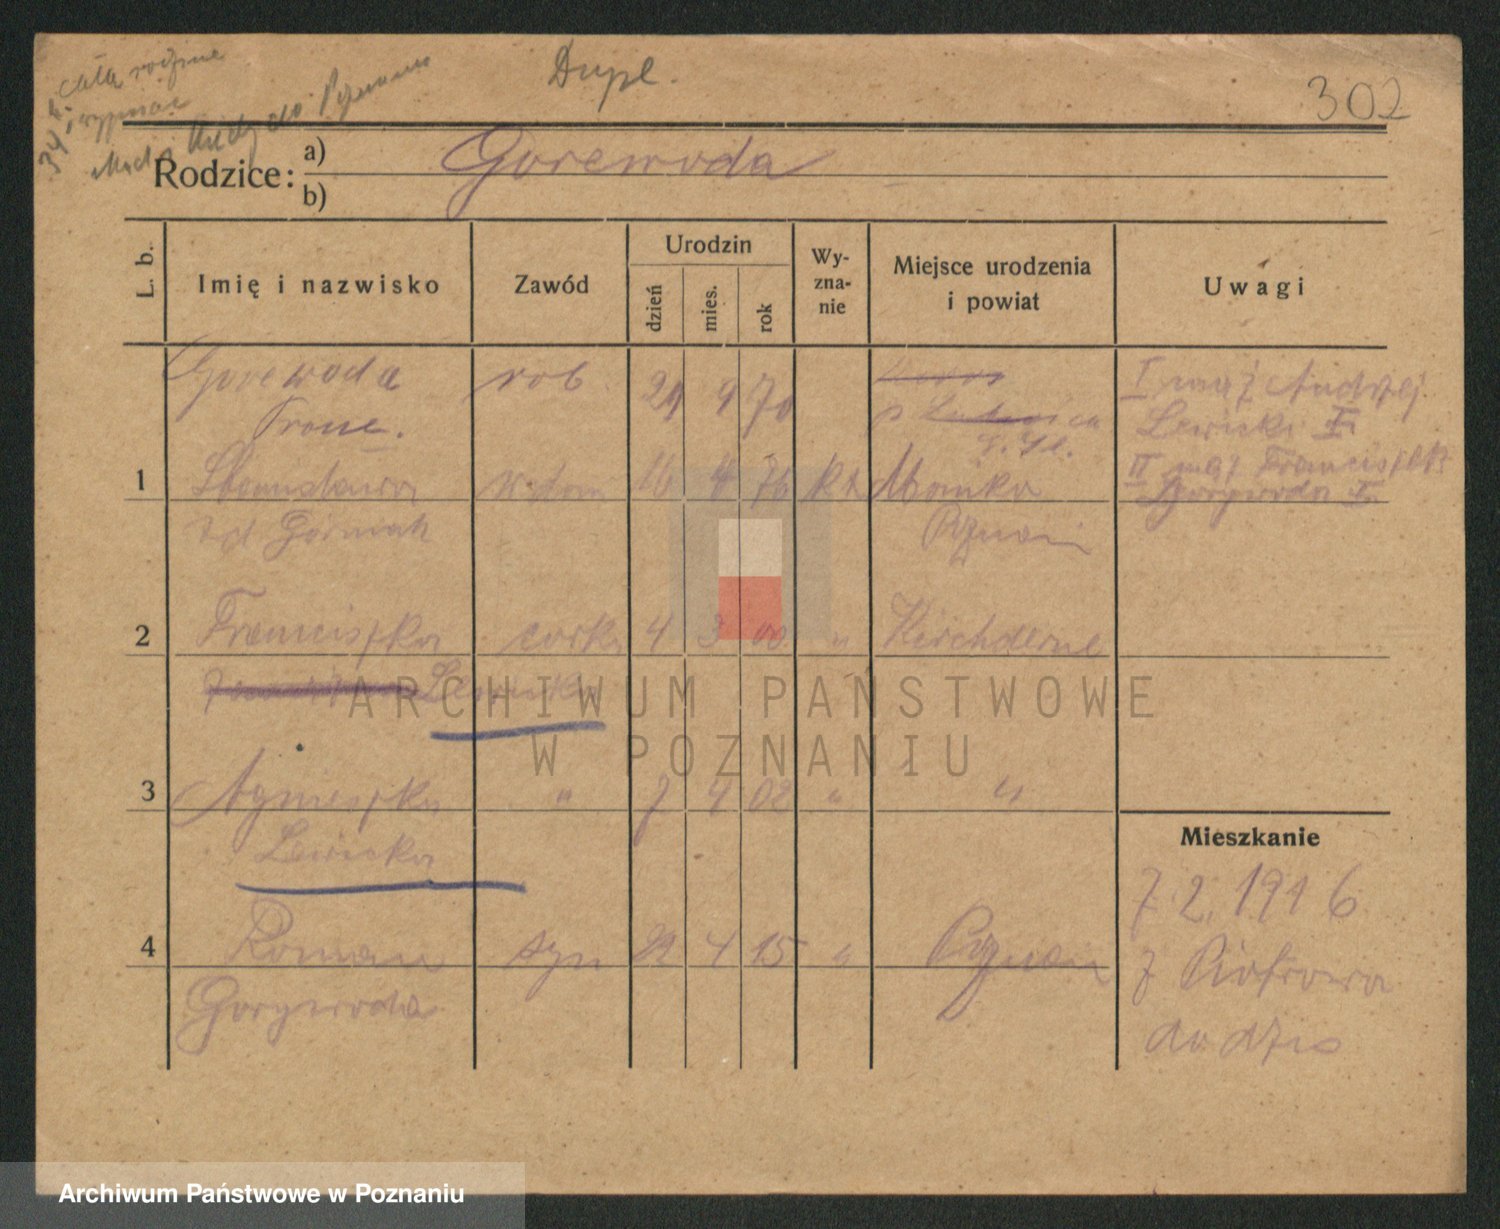 Dupl.
302
cała rodzina
wypisać
do Poznania
Rodzice:
a) Gorewoda
b)
L. b.
Imię i nazwisko
Zawód
Urodzin
dzień
mies.
rok
Wy-
zna-
nie
Miejsce urodzenia
i powiat
Uwagi
Gorewoda rob. 9 70
Franc.
I mąż Andrzej
Lewicki
II mąż Franciszek
Gorywoda
1 Stanisława 16 4 76
Górniak Poznań
2 Franciszka córka 4 3 00 " Kirchderne
Lewicka
3 Agnieszka " 7 4 02 " "
Lewicka
Mieszkanie
7. 2. 1916
4 Roman syn 22 4 15 " Poznań
z Piotrowa
Gorywoda
do dziś
ARCHIWUM PAŃSTWOWE
W POZNANIU
Archiwum Państwowe w Poznaniu